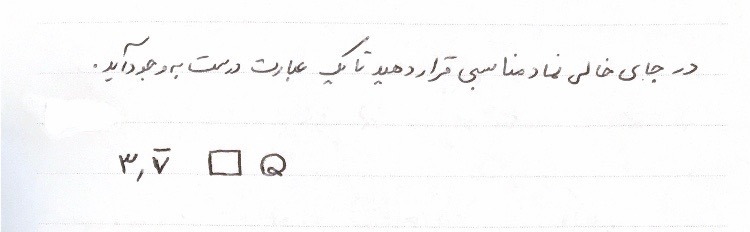 در جای خالی نماد مناسبی قرار دهید تا یک عبارت درست به وجود آید.
۳,۷̅ □ Q